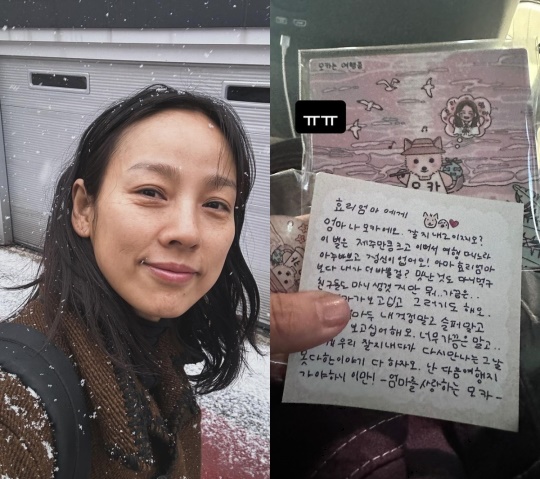 모카는 여행중
ㅠㅠ
모카
효리엄마에게
엄마 나 모카에요. 잘 지내고 있지요?
이 별은 제주만큼 크고 이뻐서 여행 다니느라
아주 바쁘고 정신이 없어요! 아마 효리엄마
보다 내가 더 바쁠걸? 맛난것도 마니먹구
친구들도 마니 생겼지만 뭐.. 가끔은..
가 보고싶고 그러기도 해요.
마두 내 걱정말고 슬퍼말고
보고싶어해요. 너무가끔은 말고..
우리 잘 지내다가 다시만나는 그날
못다한이야기 다 하자요. 난 다음여행지
가야해서 이만! -엄마를 사랑하는 모카-